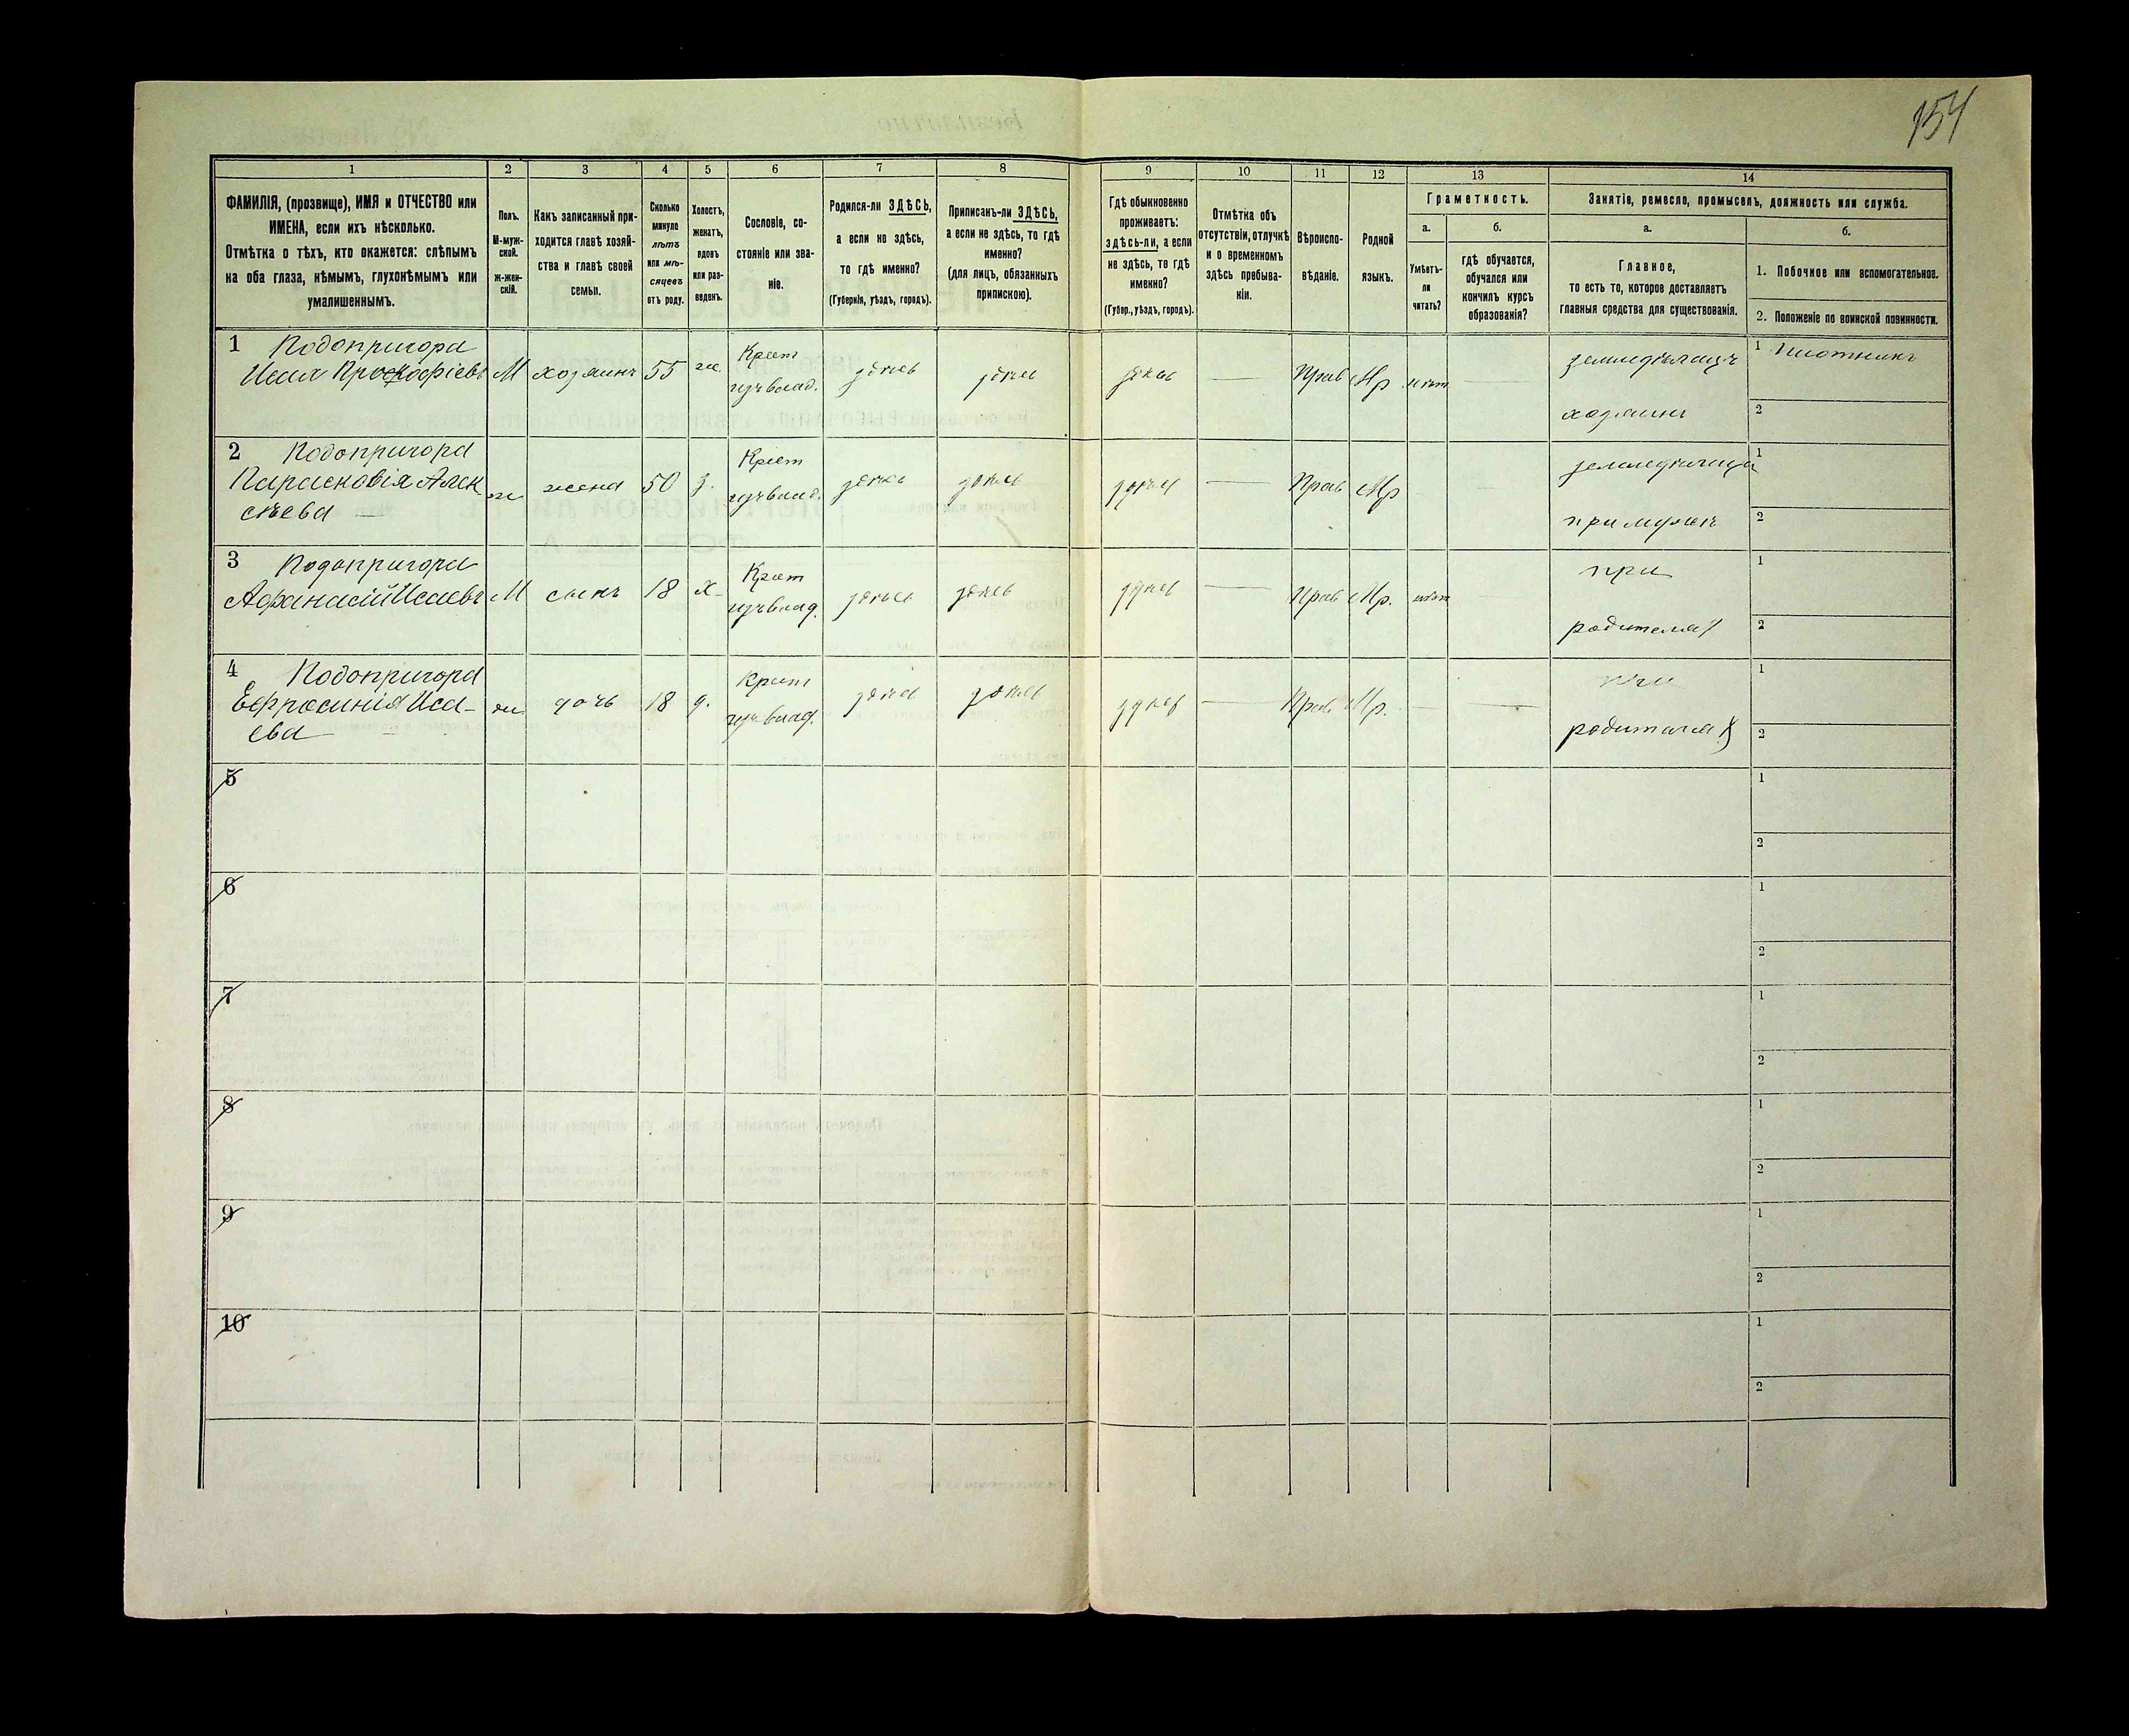 154
1
2
3
4
5
6
7
8
9
10
11
12
13
14
ФАМИЛІЯ, (прозвище), ИМЯ и ОТЧЕСТВО или
ИМЕНА, если ихъ нѣсколько.
Отмѣтка о тѣхъ, кто окажется: слѣпымъ
на оба глаза, нѣмымъ, глухонѣмымъ или
умалишеннымъ.
Полъ.
М-муж-
ской.
ж-жен-
скій.
Какъ записанный при-
ходится главѣ хозяй-
ства и главѣ своей
семьи.
Сколько
минуло
лѣтъ
или мѣ-
сяцевъ
отъ роду.
Холостъ,
женатъ,
вдовъ
или раз-
веденъ.
Сословіе, со-
стояніе или зва-
ніе.
Родился-ли ЗДѢСЬ,
а если не здѣсь,
то гдѣ именно?
(Губернія, уѣздъ, городъ).
Приписанъ-ли ЗДѢСЬ,
а если не здѣсь, то гдѣ
именно?
(для лицъ, обязанныхъ
припискою).
Гдѣ обыкновенно
проживаетъ:
здѣсь-ли, а если
не здѣсь, то гдѣ
именно?
(Губер., уѣздъ, городъ).
Отмѣтка объ
отсутствіи, отлучкѣ
и о временномъ
здѣсь пребыва-
ніи.
Вѣроиспо-
вѣданіе.
Родной
языкъ.
Грамотность.
а.
б.
Умѣетъ-
ли
читать?
гдѣ обучается,
обучался или
кончилъ курсъ
образованія?
Занятіе, ремесло, промыселъ, должность или служба.
а.
б.
Главное,
то есть то, которое доставляетъ
главныя средства для существованія.
1. Побочное или вспомогательное.
2. Положеніе по воинской повинности.
1 Подопригора
Исая Прокофіевъ
М
хозяинъ
55
ж.
Крест
изъ влад.
здѣсь
здѣсь
здѣсь
—
Прав
Мр
нѣт
—
земледѣлецъ
хозяинъ
1 Плотникъ
2
2 Подопригора
Парасковія Алек
сѣева —
ж
жена
50
з.
Крест
изъ влад.
здѣсь
здѣсь
здѣсь
—
Прав
Мр
земледѣлица
при мужѣ
1
2
3 Подопригора
Афанасій Исаевъ
М
сынъ
18
х
Крест
изъ влад.
здѣсь
здѣсь
здѣсь
—
Прав
Мр.
при
родителяхъ
1
2
4 Подопригора
Ефросинія Иса-
ева
ж
дочь
18
д.
Крест
изъ влад.
здѣсь
здѣсь
здѣсь
—
Прав
Мр.
—
—
при
родителяхъ
1
2
5
1
2
6
1
2
7
1
2
8
1
2
9
1
2
10
1
2